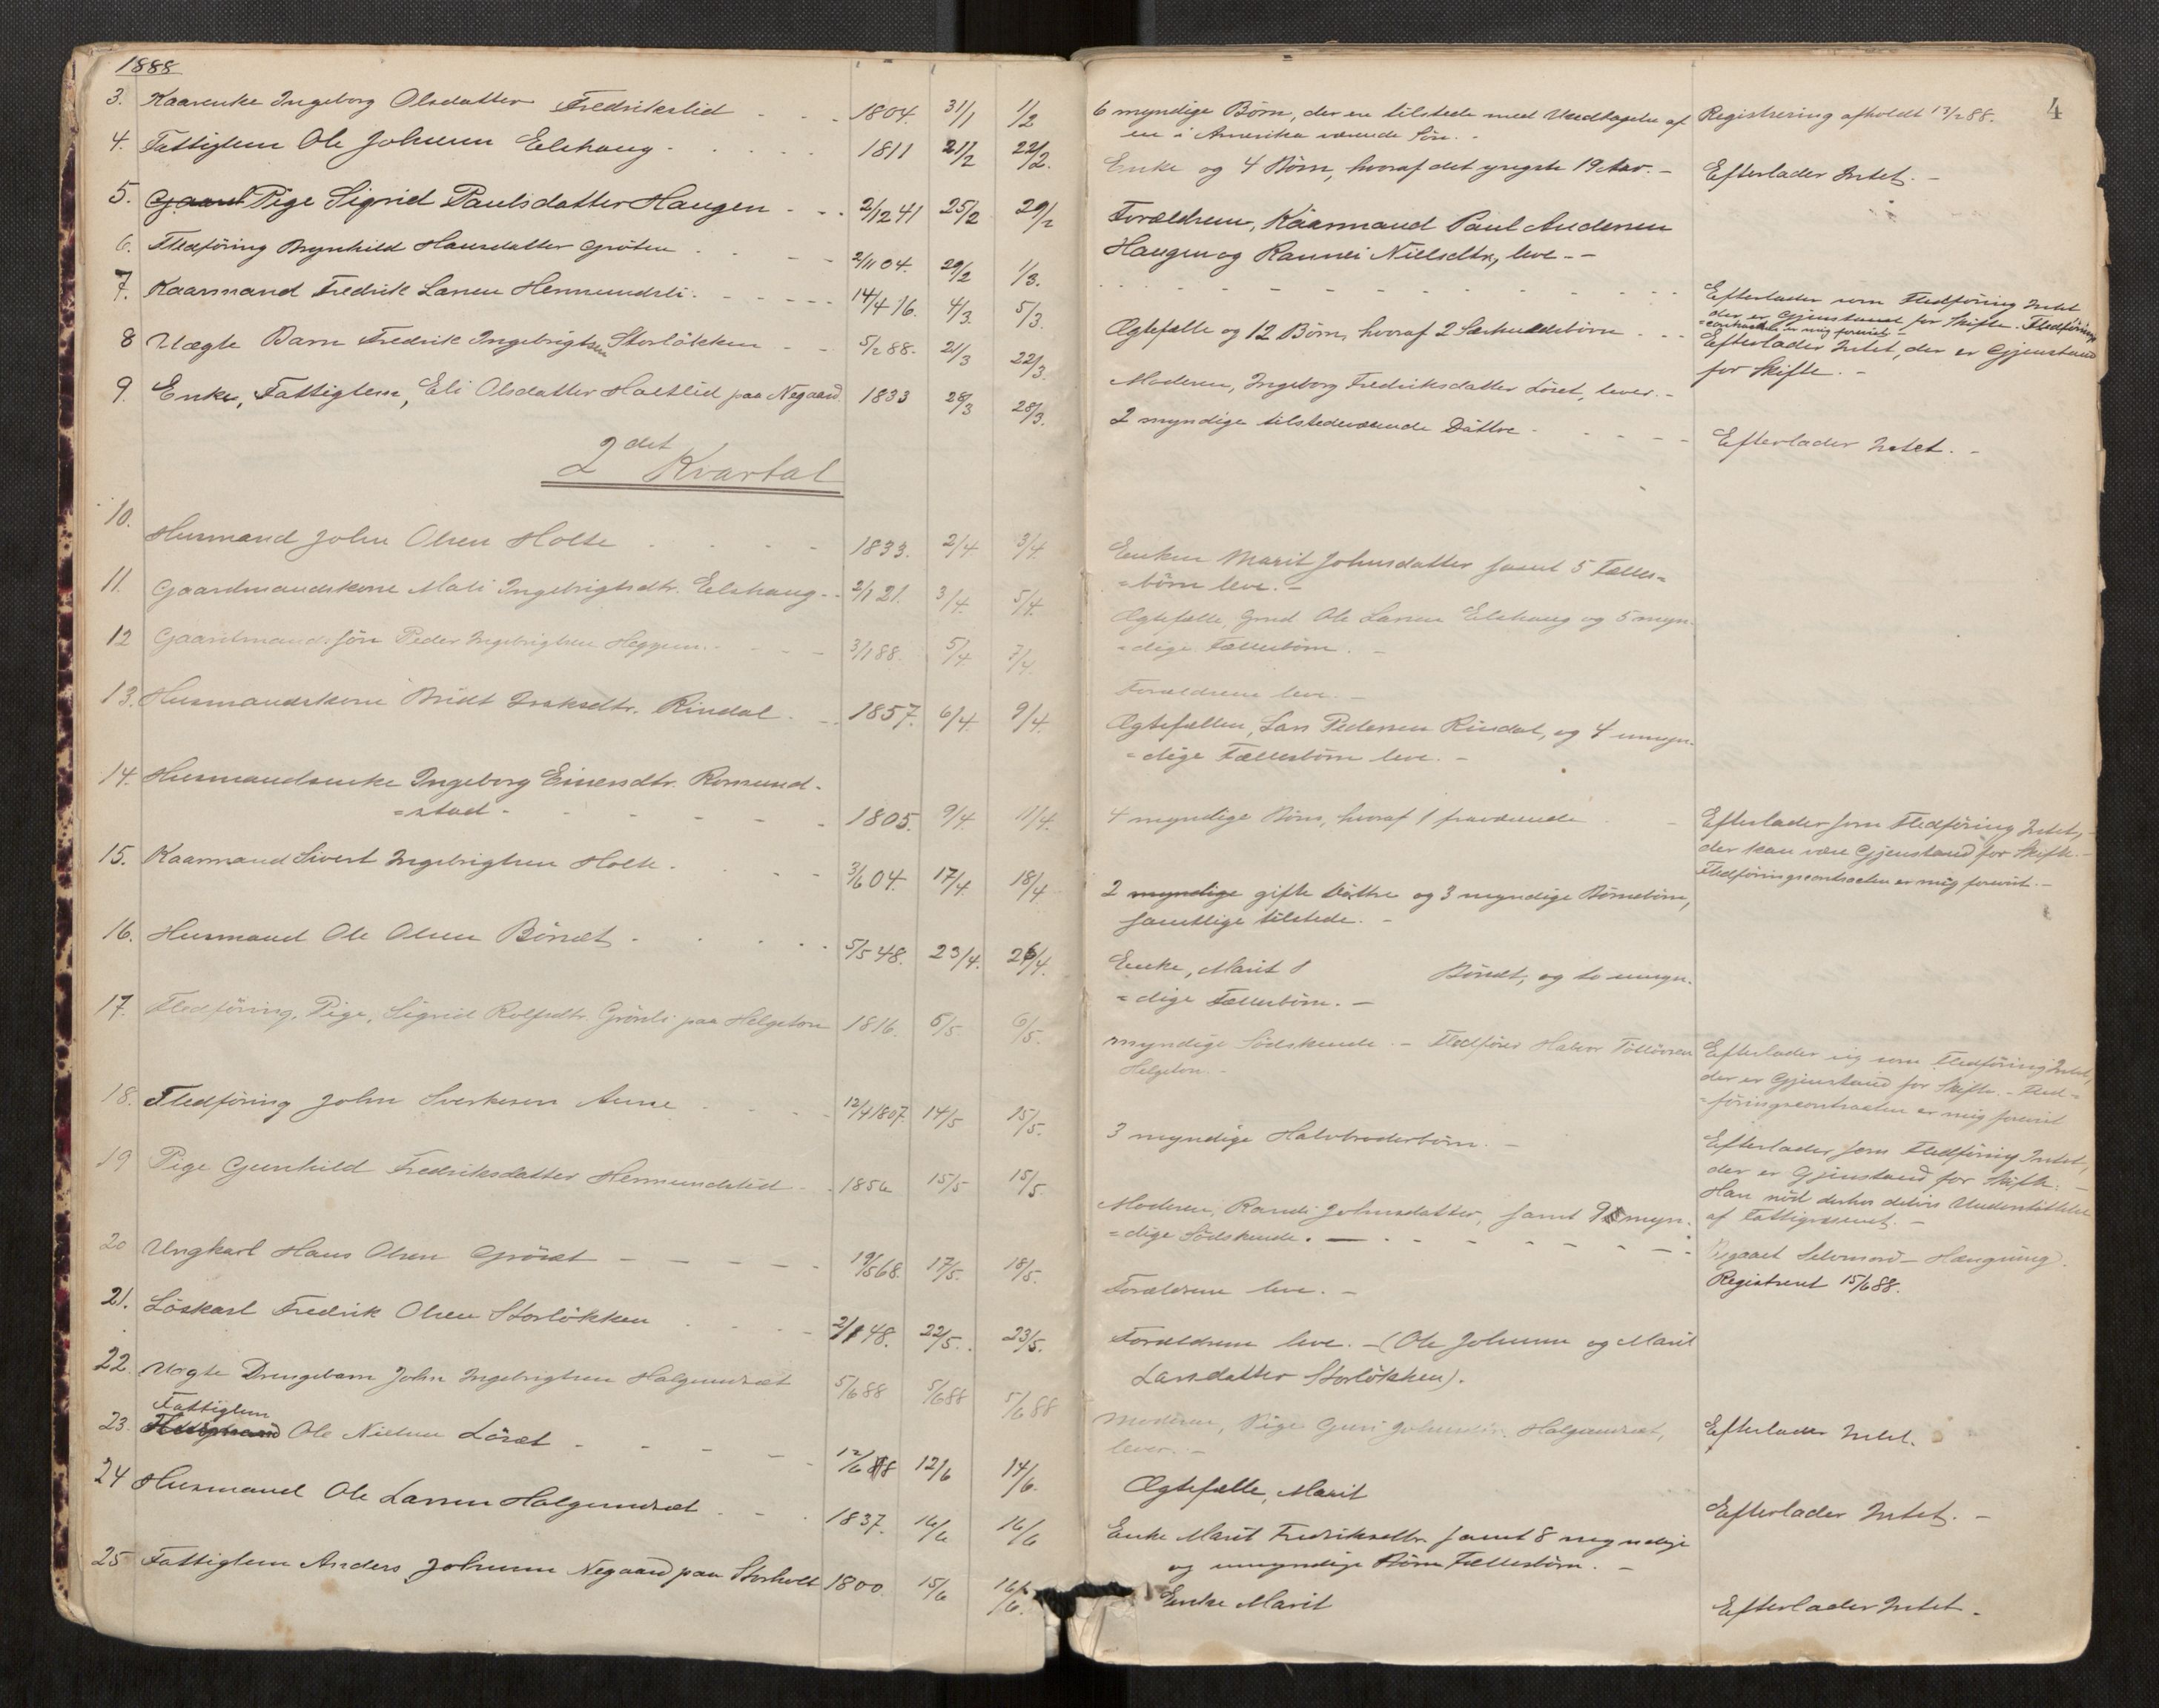 1888
3. Kaarenke Ingeborg Olsdatter Fredrikslid - - - 1804. 31/1 1/2
4. Fattiglem Ole Johnsen Elshaug - . . . . 1811 21/2 22/2.
5. Gaard Pige Sigrid Paulsdatter Haugen - - . 2/12 41 25/2 29/2
6. Fledföring Brynhild Hansdatter Gröten . . - - 2/11 04. 29/2 1/3.
7. Kaarmand Fredrik Larsen Hermundsli. - - - - - 14/4 16. 4/3. 5/3.
8 Uægte Barn Fredrik Ingebrigtsen Storlökken - - 5/2 88. 21/3 22/3.
9. Enke, Fattiglem, Eli Olsdatter Holtlid paa Negaard. 1833 28/3 28/3.
2det Kvartal
10.
Husmand John Olsen Holte . . . - 1833. 2/4 3/4.
11. Gaardmandskone Mali Ingebrigtsdtr. Elshaug - - 2/1 21. 3/4. 5/4.
12 Gaardmandssön Peder Ingebrigtsen Heggem. - - - - 3/1 88. 5/4. 7/4.
13. Husmandskone Bridt Isaksdtr. Rindal . - - 1857. 6/4. 9/4.
14. Husmandsenke Ingeborg Einersdtr. Romund-
=stad - - - - - - 1805. 9/4. 11/4.
15. Kaarmand Sivert Ingebrigtsen Holte . . . - - 3/6 04. 17/4. 18/4
16. Husmand Ole Olsen Börset . . . . . 5/5 48. 23/4. 26/4.
17. Fledföring, Pige, Sigrid Rolfsdtr. Grönli paa Helgeton 1816. 5/5 6/5.
18. Fledföring John Sverkesen Aune . . - - 12/4 1807. 14/5 15/5.
19 Pige Gunhild Fredriksdatter Hermundslid - . 1856 15/5 15/5.
20 Ungkarl Hans Olsen Gröset - - - - - 19/5 68. 17/5. 18/5.
21. Löskarl Fredrik Olsen Storlökken . . . - 2/1 48. 22/5. . 23/5.
22. Uægte Drengebarn John Ingebrigtsen Halgunset 5/6 88 5/6 88 5/6 88
Fattiglem
23. Ole Nielsen Löset - - - - - 12/6 12/6 14/6.
24 Husmand Ole Larsen Halgunset . - . 1837. 14/6 16/6
25 Fattiglem Anders Johnsen Negaard paa Storholt 1800. 15/6 16/6.
4
6 myndige Börn, der ere tilstede med Undtagelse af
en i Amerika værende Sön. -
Registrering afholdt 13/2 88.
Enke og 4 Börn, hvoraf det yngste 19 Aar. -
Efterlader Intet. -
Forældrene, Kaarmand Paul Andersen
Haugen og Rannei Nielsdtr, leve - -
Efterlader som Fledföring Intet
der er Gjenstand for Skifte. Fledförings
=contracten er mig forevist -
Ægtefælle og 12 Börn, hvoraf 2 Særkuldsbörn - - -
Efterlader Intet, der er Gjenstand
for Skifte. -
Moderen, Ingeborg Fredriksdatter Löset, lever. -
2 myndige tilstedeværende Döttre - . . - -
Efterlader Intet. -
Enken Marit Johnsdatter samt 5 Fælles=
=börn leve. -
Ægtefælle, Gmd Ole Larsen Elshaug og 5 myn-
=dige Fællesbörn. -
Forældrene leve. -
Ægtefællen, Lars Pedersen Rindal, og 4 umyn-
=dige Fællesbörn leve. -
4 myndige Börn, hvoraf 1 fraværende . -
Efterlader som Fledföring Intet,
der kan være Gjenstand for Skifte. -
Fledföringscontracten er mig forevist. -
2 myndige gifte Döttre og 3 myndige Börnebörn,
samtlige tilstede. -
Enke, Marit Börset, og to umyn-
=dige Fællesbörn. -
myndige Södskende. - Fledförer Halvor Tollövsen
Helgeton. -
Efterlader sig som Fledföring Intet,
der er Gjenstand for Skifte. - Fled=
=föringscontracten er mig forevist
3 myndige Halvbroderbörn. -
Efterlader som Fledföring Intet,
der er Gjenstand for Skifte. -
Han nöd derhos delvis Understöttelse
af Fattigvæsenet. -
Moderen, Randi Johnsdatter, samt 9 myn-
=dige Södskende. - - - - - - -
Begaaet Selvmord - Hængning.
Registreret 15/6 88.
Forældrene leve. -
Forældrene leve. - (Ole Johnsen og Marit
Larsdatter Storlökken).
Moderen, Pige Guri Johnsdtr. Halgunset,
lever. -
Efterlader Intet.
Ægtefælle, Marit
Efterlader Intet. -
Enke Marit Fredriksdtr. samt 8 myndige
og umyndige Börn Fællesbörn. -
Enke Marit
Efterlader Intet -